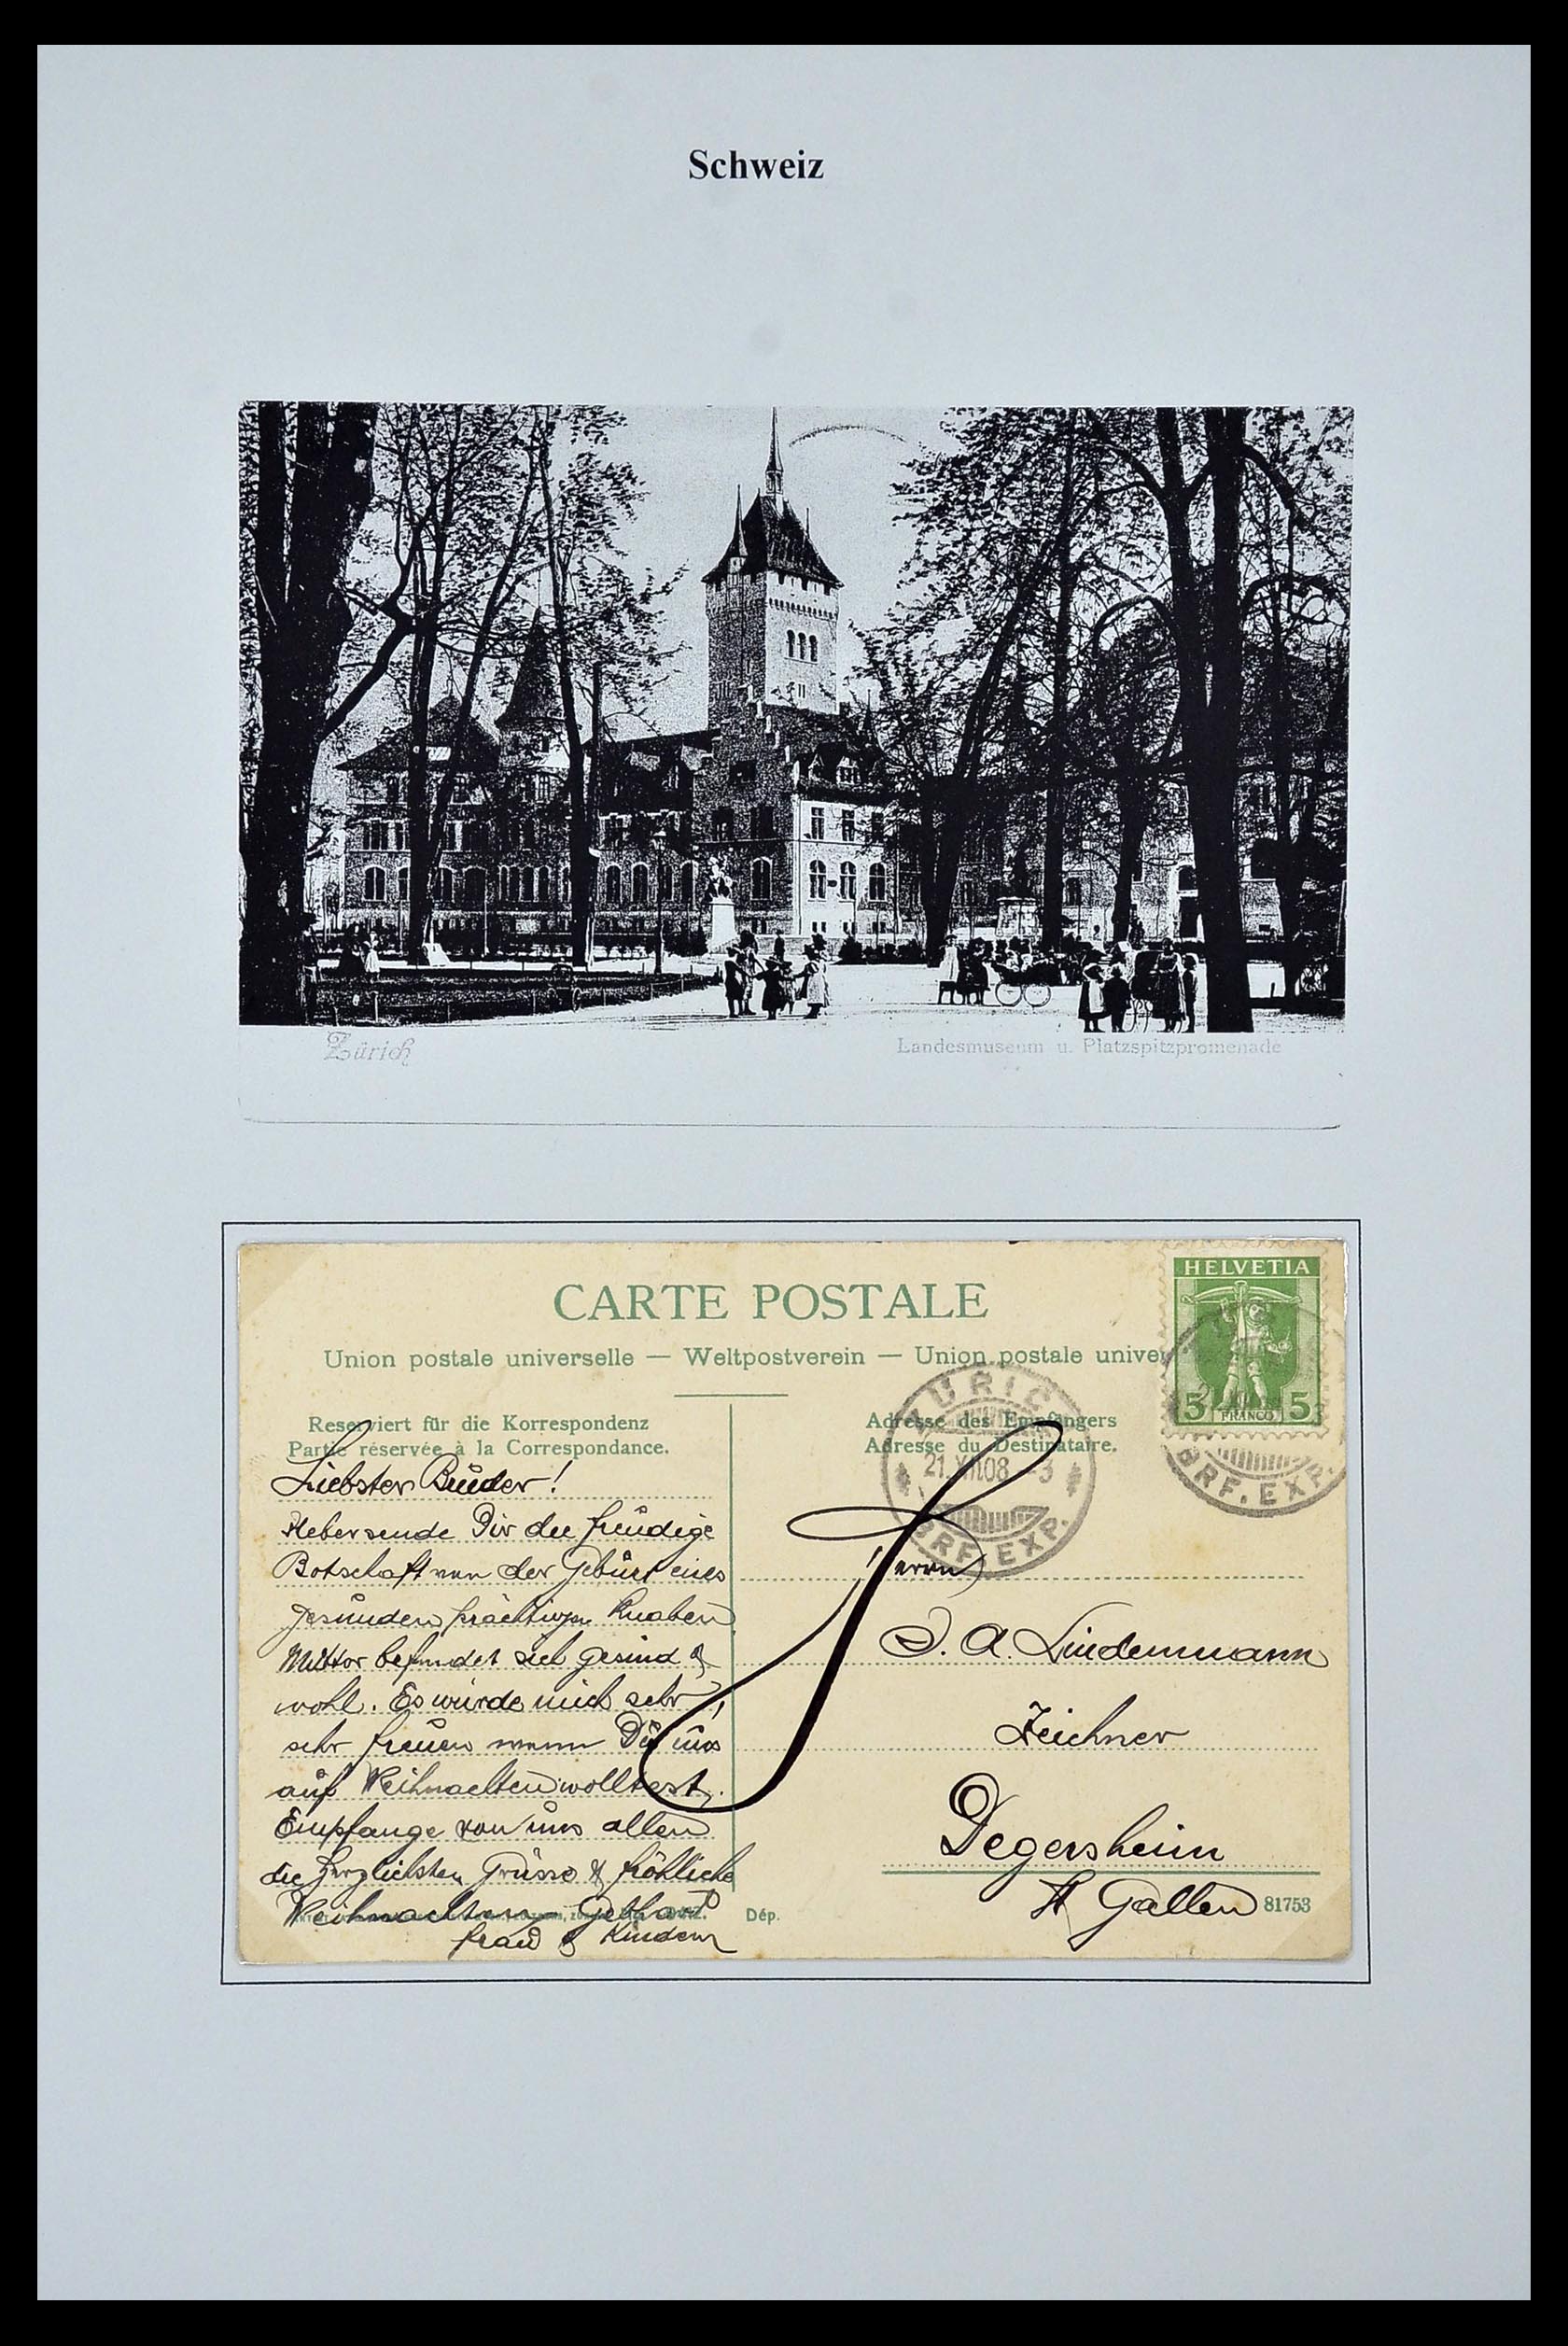 Schweiz
Zürich
Landesmuseum u. Platzspitzpromenade
CARTE POSTALE
Union postale universelle — Weltpostverein — Union postale univer
HELVETIA
5 FRANCO 5
ZÜRICH
21.XII.08 -3
BRF. EXP.
BRF. EXP.
Reserviert für die Korrespondenz
Partie réservée à la Correspondance.
Liebster Bruder!
Uebersende Dir die freudige
Botschaft von der Geburt eines
gesunden prächtigen Knaben
Mutter befindet sich gesund &
wohl. Es würde mich sehr,
sehr freuen wenn Du uns
auf Weihnachten wolltest.
Empfange von uns allen
die herzlichsten Grüsse & fröhliche
Weihnachten Gebhard
Frau & Kinder
Adresse des Empfängers
Adresse du Destinataire.
Herrn
J. A. Lindenmann
Zeichner
Degersheim
St Gallen
81753
Dép.